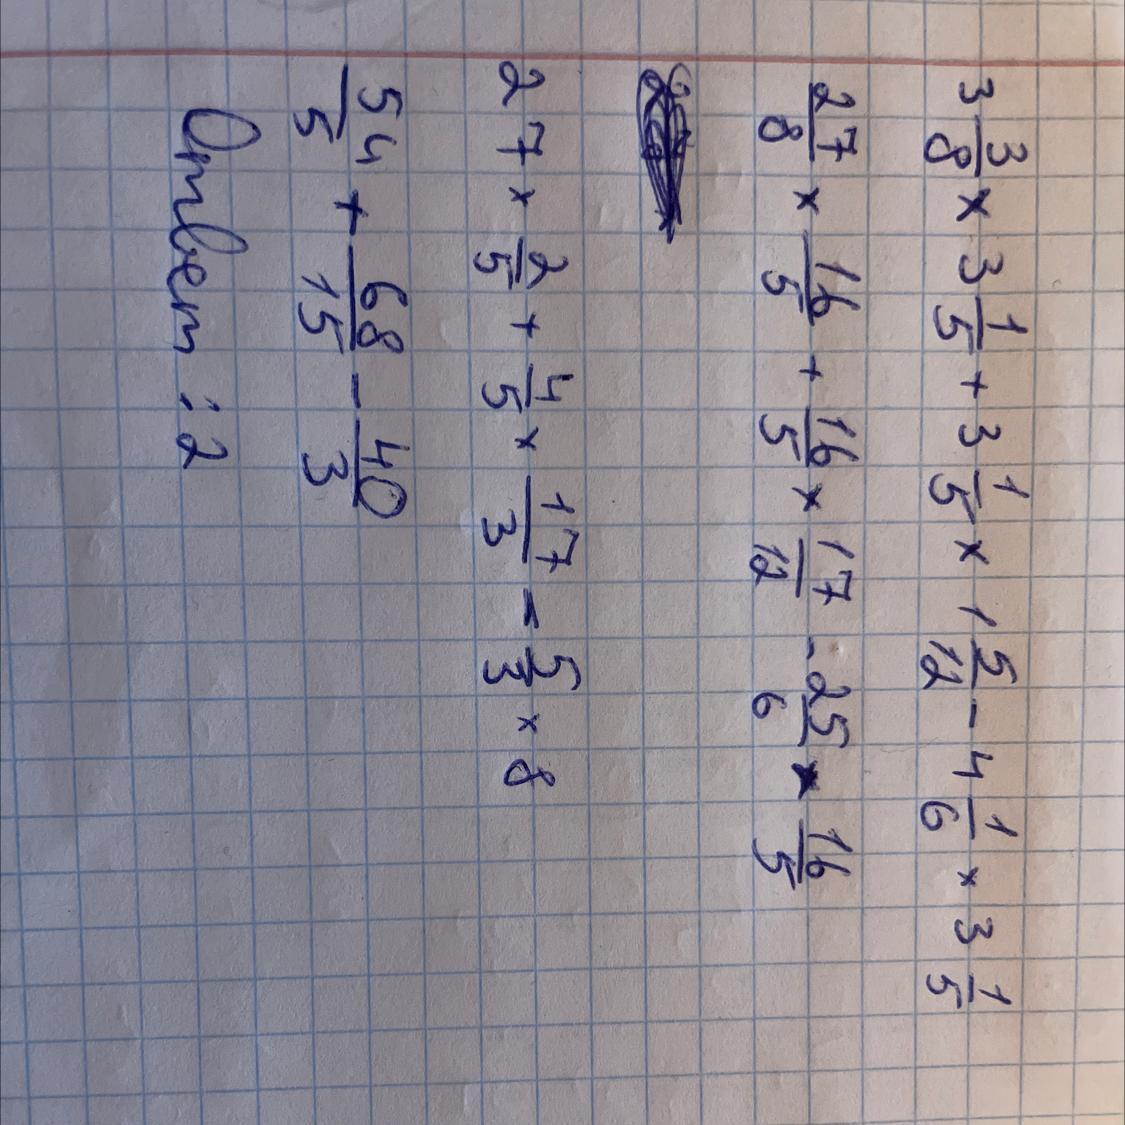 3 3/8 × 3 1/5 + 3 1/5 × 1 5/12 - 4 1/6 × 3 1/5
27/8 × 16/5 + 16/5 × 17/12 - 25/6 × 16/5
27 × 2/5 + 4/5 × 17/3 - 5/3 × 8
54/5 + 68/15 - 40/3
Ответ: 2